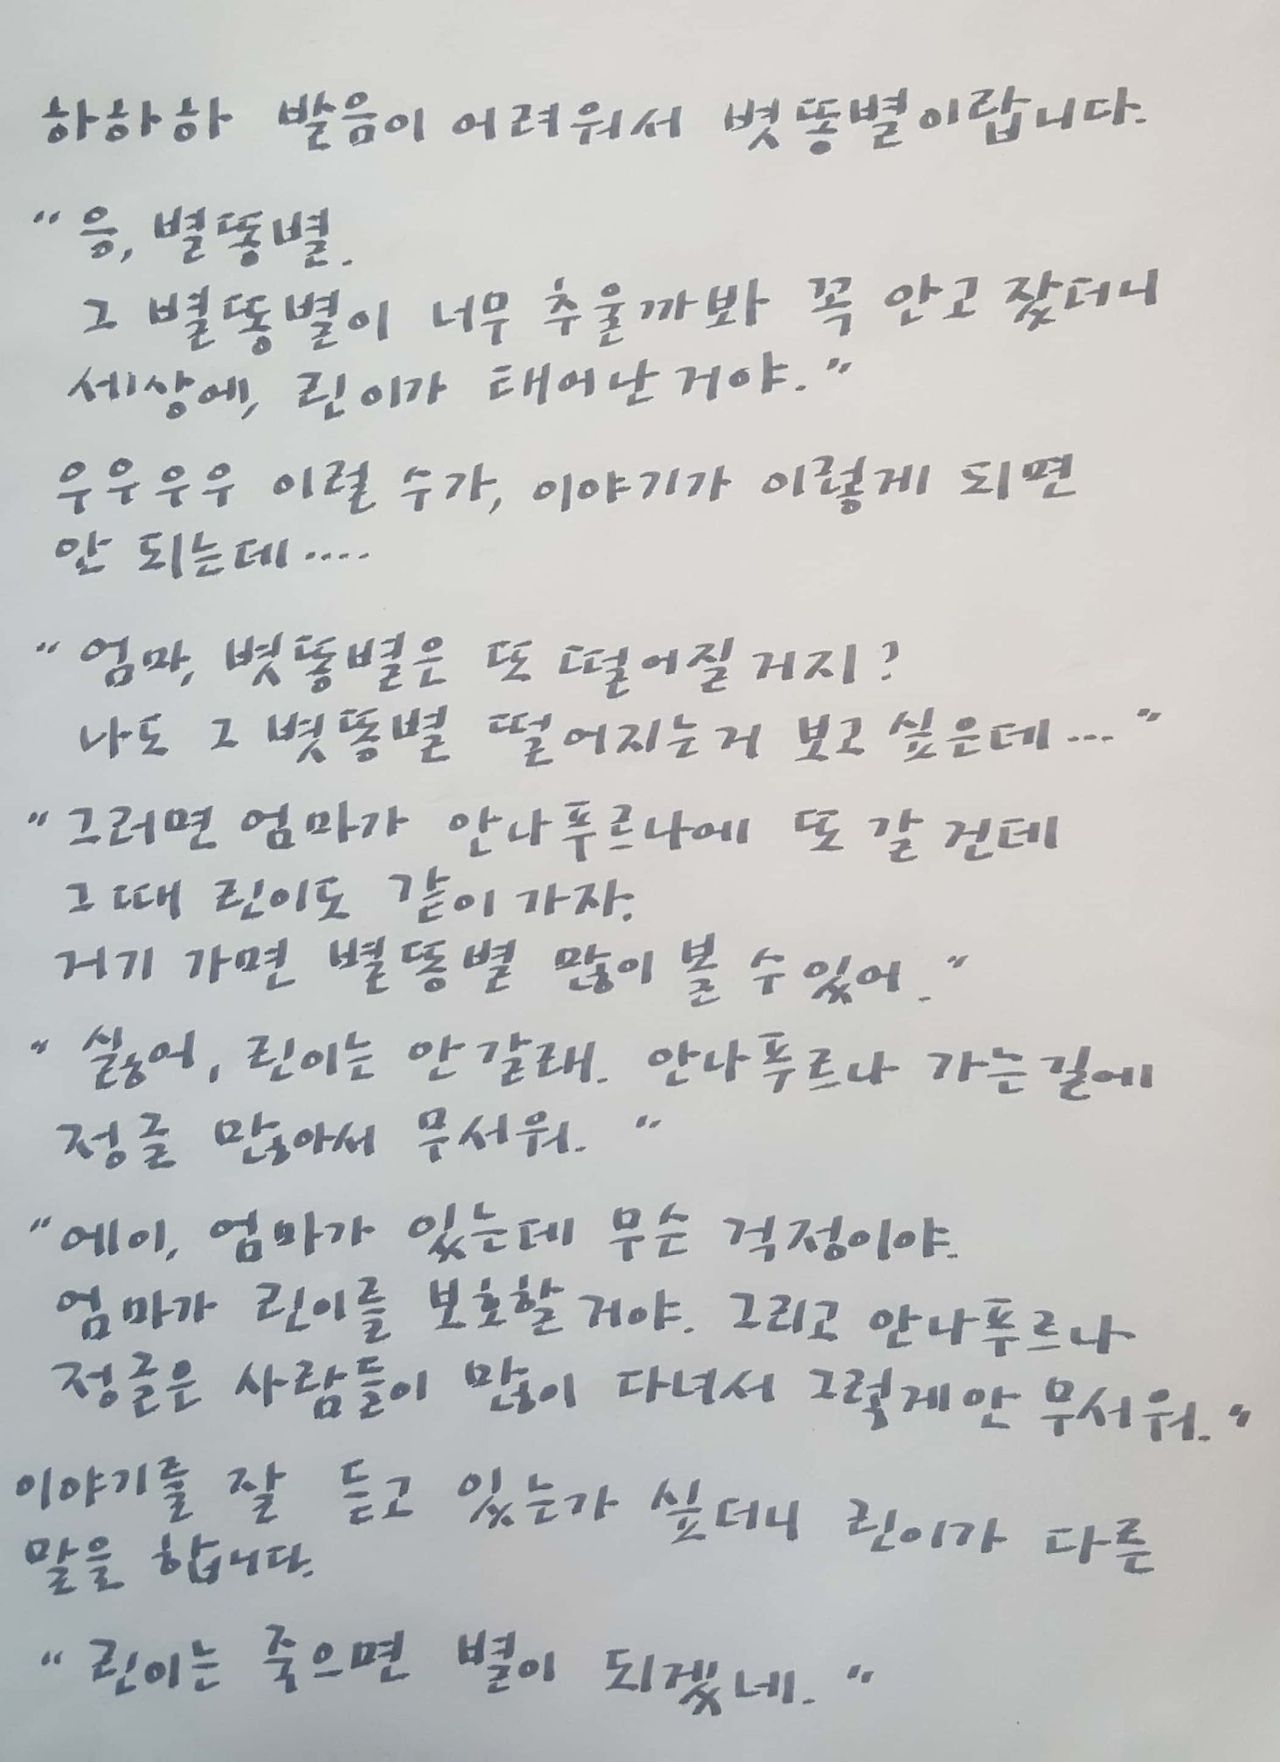 하하하 발음이 어려워서 볓똥별이랍니다.
“응, 별똥별.
그 별똥별이 너무 추울까봐 꼭 안고 잤더니
세상에, 린이가 태어난거야.”
우우우우 이럴 수가, 이야기가 이렇게 되면
안 되는데....
“엄마, 볓똥별은 또 떨어질거지?
나도 그 볓똥별 떨어지는거 보고싶은데...”
“그러면 엄마가 안나푸르나에 또 갈 건데
그때 린이도 같이 가자.
거기 가면 별똥별 많이 볼 수 있어.”
“싫어, 린이는 안갈래. 안나푸르나 가는길에
정글 많아서 무서워.”
“에이, 엄마가 있는데 무슨 걱정이야.
엄마가 린이를 보호할거야. 그리고 안나푸르나
정글은 사람들이 많이 다녀서 그렇게 안 무서워.”
이야기를 잘 듣고 있는가 싶더니 린이가 다른
말을 합니다.
“린이는 죽으면 별이 되겠네.”